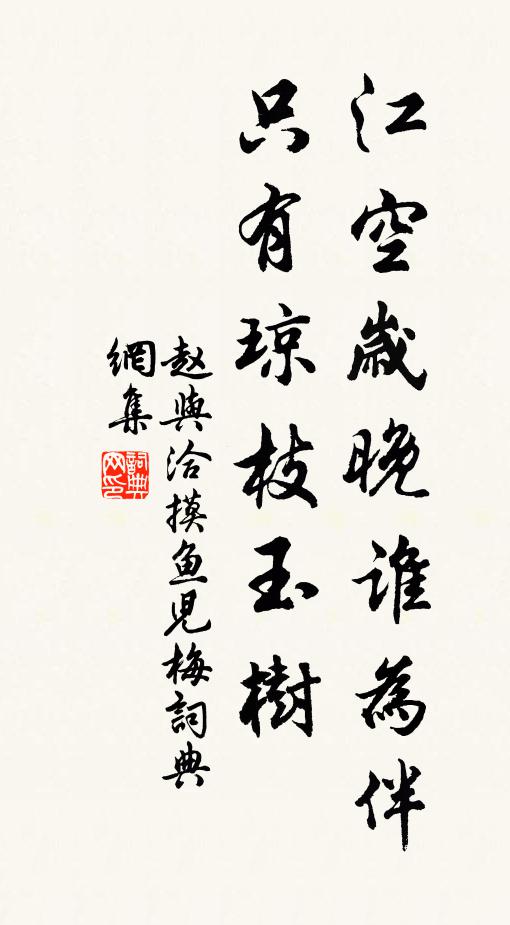 江空歲晚誰為伴
只有琼枝玉樹
赵與洽摸鱼児梅詞典
網集
詞典网印